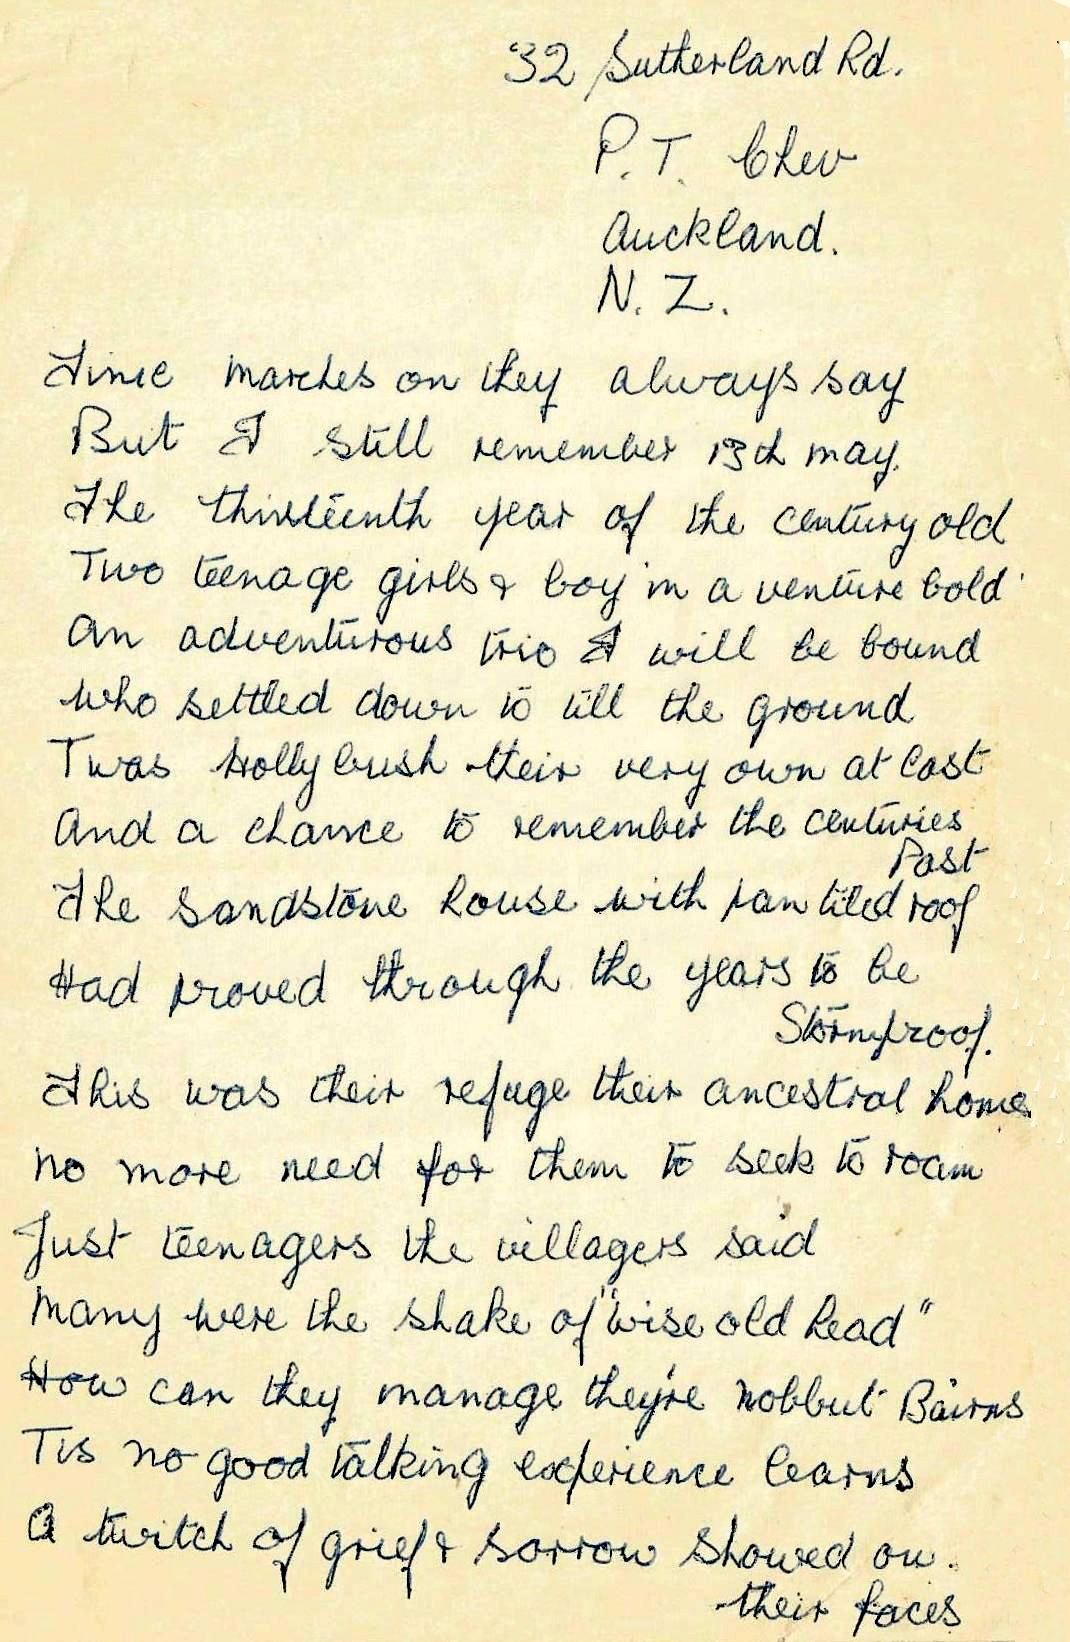 32 Sutherland Rd.
P.T. Chev
Auckland.
N. Z.
Time marches on they always say
But I still remember 13th may.
The thirteenth year of the century old
Two teenage girls & boy in a venture bold
An adventurous trio I will be bound
who settled down to till the ground
Twas Hollybush their very own at last
And a chance to remember the centuries
Past
The Sandstone house with pan tiled roof
Had proved through the years to be
Stormproof.
This was their refuge their ancestral home
No more need for them to seek to roam
Just teenagers the villagers said
Many were the shake of "wise old head"
How can they manage they're nobbut Bairns
Tis no good talking experience learns
A twitch of grief & sorrow showed on.
their faces